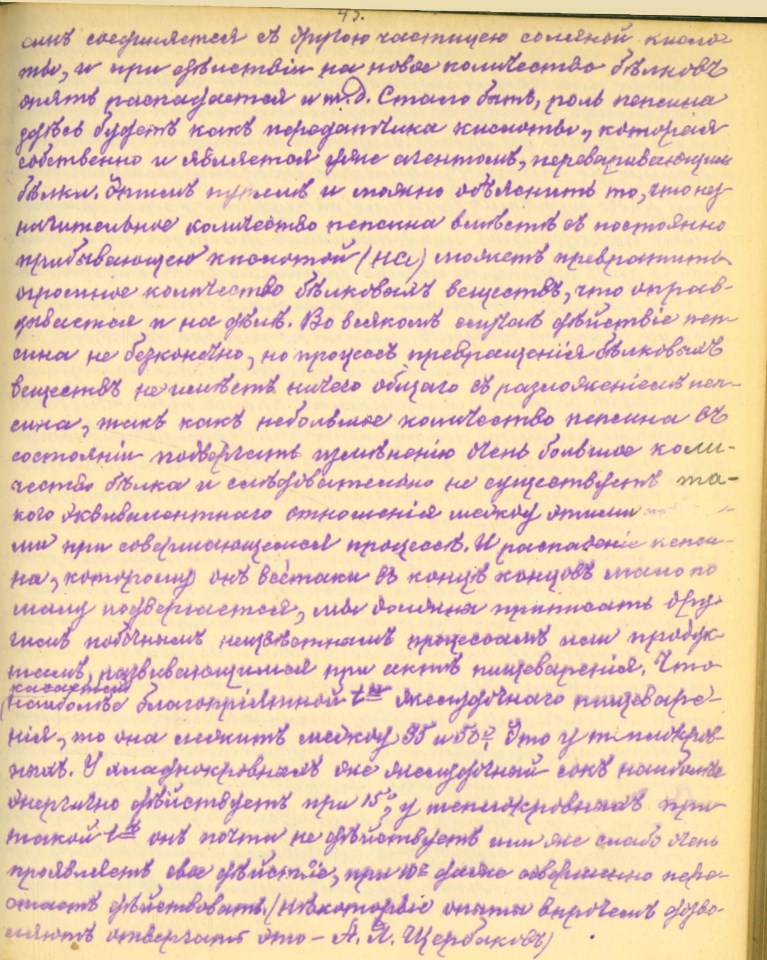 43.
синъ соединяется съ другою частицею соляной кисло-
ты, и при дѣйствіи на новое количество бѣлковъ
опять распадается и т.д. Стало быть, роль пепсина
здѣсь будетъ какъ передатчика кислоты, которая
собственно и является уже агентомъ, переваривающимъ
бѣлки. Этимъ путемъ и можно объяснить то, что нез-
начительное количество пепсина вмѣстѣ съ постоянно
прибывающею кислотой (HCl) можетъ превратить
огромное количество бѣлковыхъ веществъ, что оправ-
дывается и на дѣлѣ. Во всякомъ случаѣ дѣйствіе пеп-
сина не безконечно, но процессъ превращенія бѣлковыхъ
веществъ не имѣетъ ничего общаго съ разложеніемъ пеп-
сина, такъ какъ небольшое количество пепсина въ
состояніи подвергать измѣненію очень большое коли-
чество бѣлка и слѣдовательно не существуетъ та-
кого эквивалентнаго отношенія между этими
ми при совершающемся процессѣ. И распаденіе пепси-
на, которому онъ всетаки въ концѣ концовъ мало по
малу подвергается, мы должны приписать дру-
гимъ побочнымъ неизвѣстнымъ процессамъ или продук-
тамъ, развивающимся при актѣ пищеваренія. Что
касается
(наиболѣе благопріятной tы желудочнаго пищеваре-
нія, то она лежитъ между 35 и 50°. Это у теплокров-
ныхъ. У хладнокровныхъ же желудочный сокъ наиболѣе
энергично дѣйствуетъ при 15°, у теплокровныхъ при
такой tѣ онъ почти не дѣйствуетъ или же слабо очень
проявляетъ свое дѣйствіе, при 10° даже совершенно пере-
стаетъ дѣйствовать. (Нѣкоторые опыты впрочемъ дозво-
ляютъ отвергать это – А. Я. Щербаковъ)